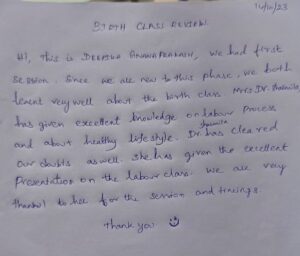 14/10/23
BIRTH CLASS REVIEW.
Hi, This is DEEPIKA GNANAPRAKASH, we had first
session. Since we are new to this phase, we both
learnt very well about the birth class Mrs. Dr.
has given excellent knowledge on labour process
and about healthy lifestyle. Dr has cleared
our doubts as well. She has given the excellent
presentation on the labour class. We are very
thankful to her for the session and timings
Thank you ☺